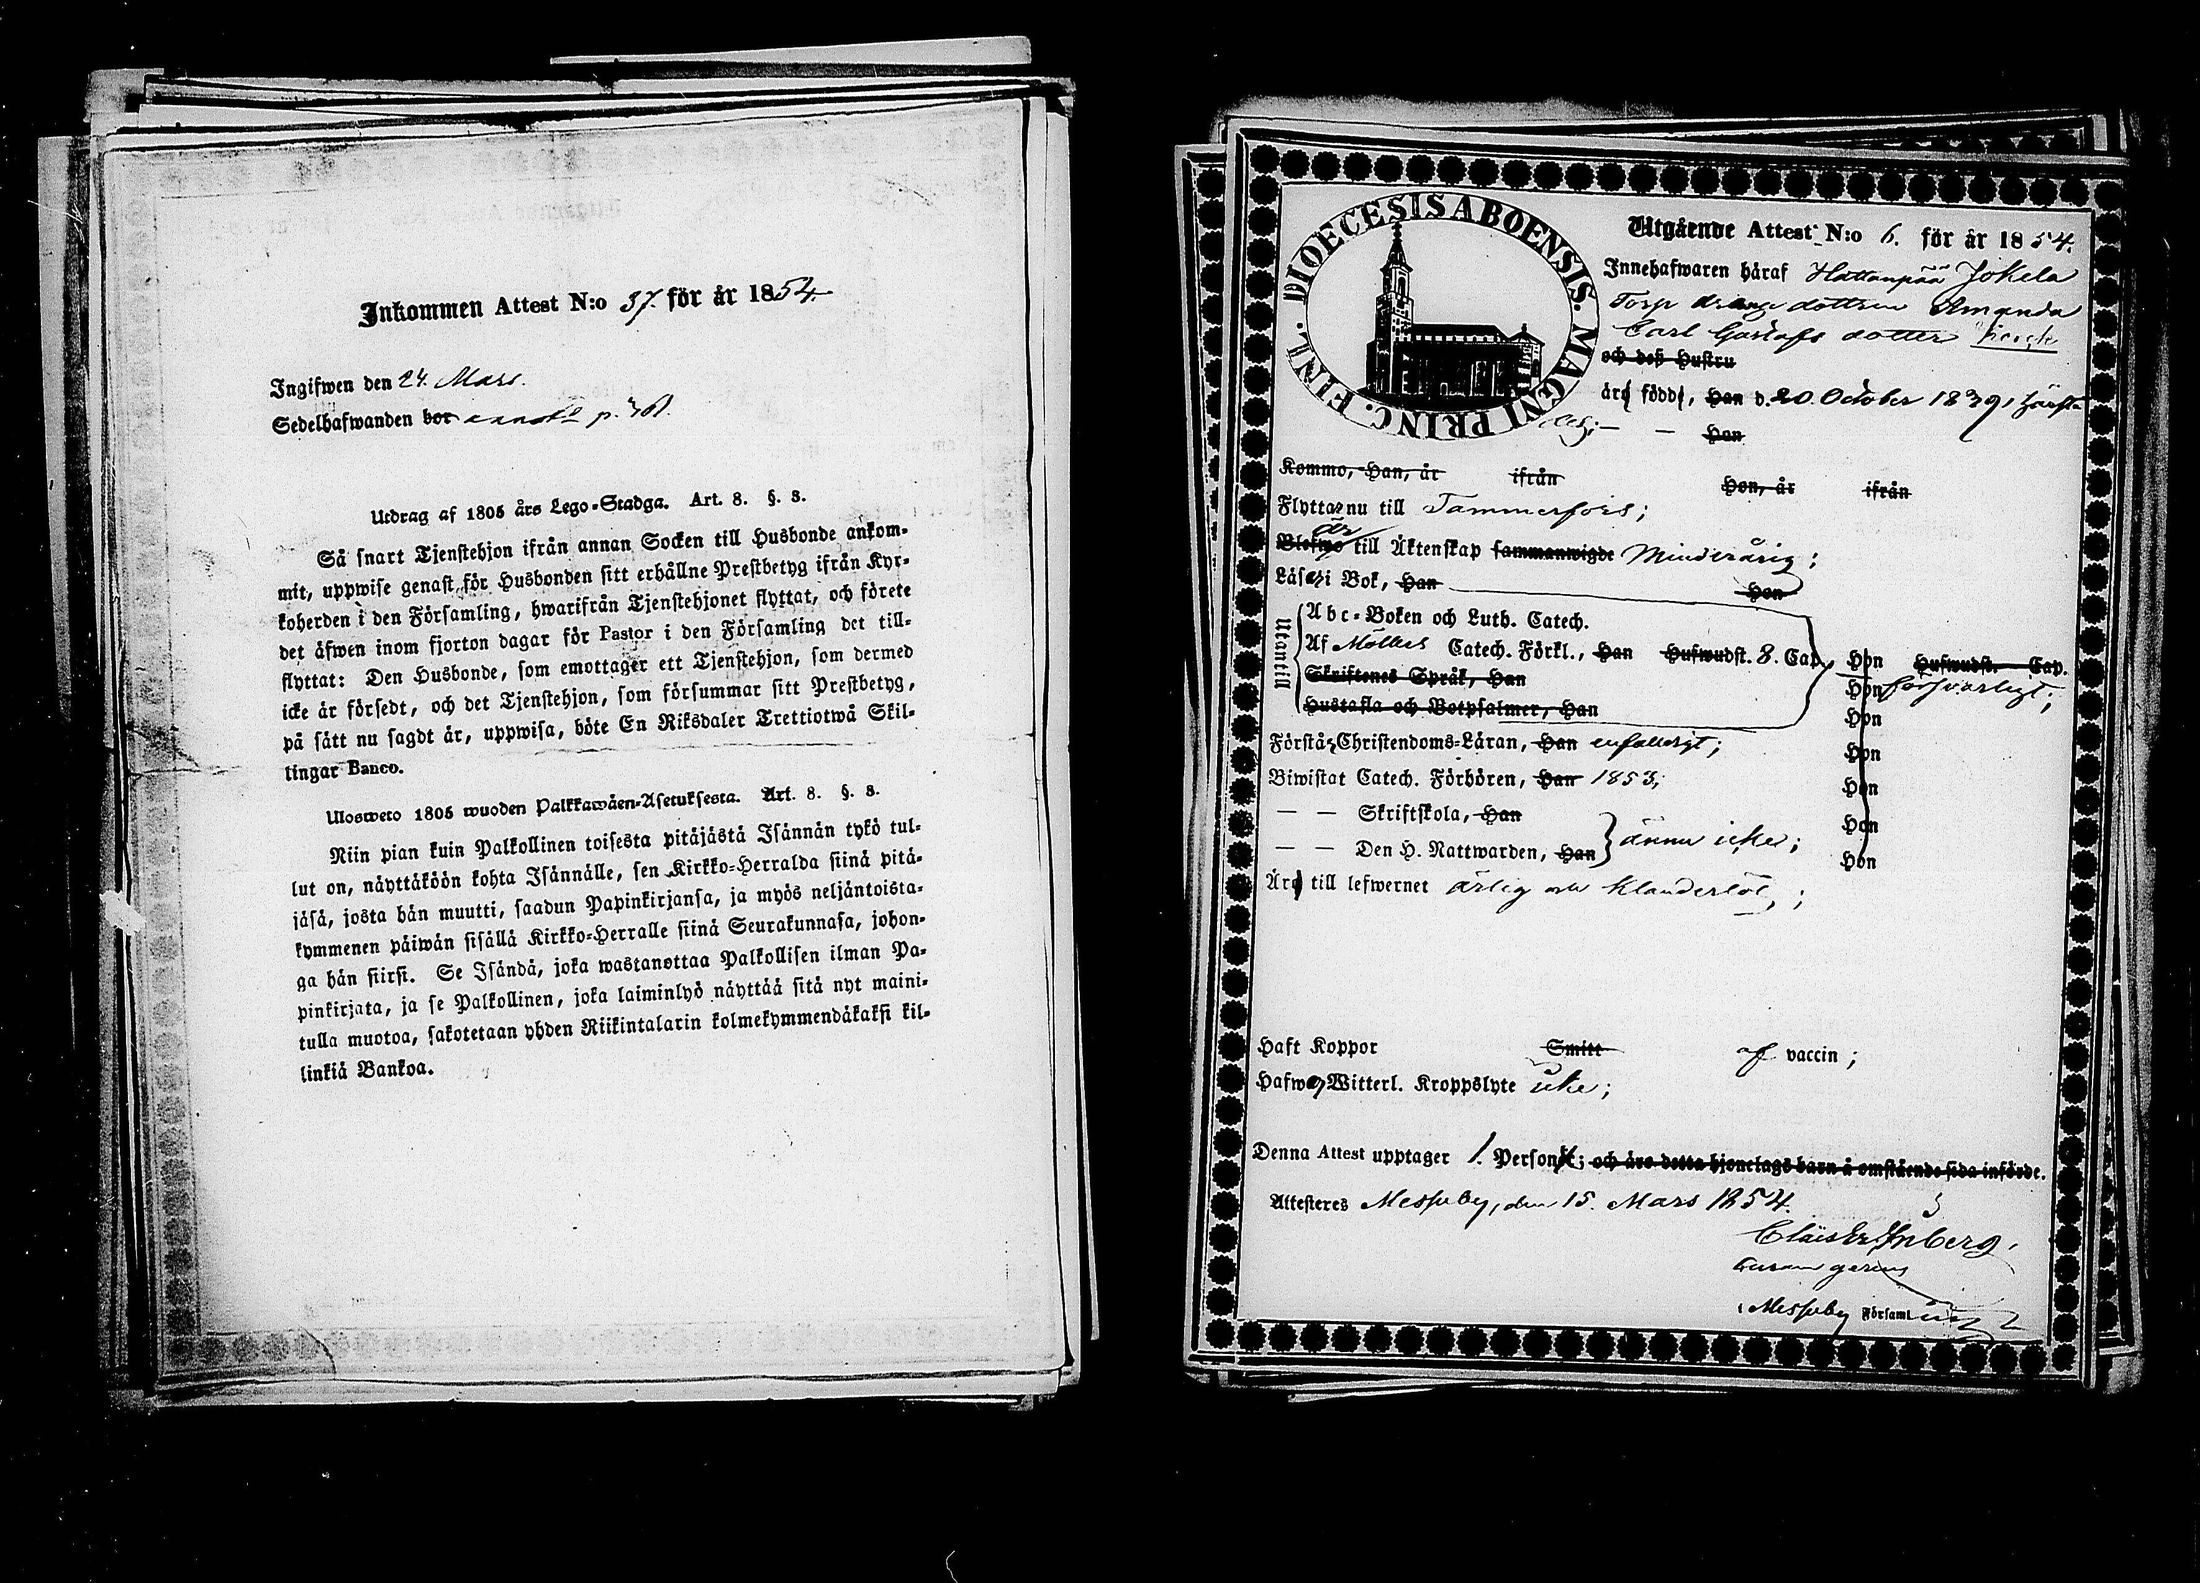 Inkommen Attest N:o 37. för år 1854.
Ingifwen den 24. Mars.
Sedelhafwanden bor p. 461.
Utdrag af 1805 års Lego-Stadga. Art. 8. §. 8.
Så snart Tjenstehjon ifrån annan Socken till Husbonde ankom-
mit, uppwise genast för Husbonden sitt erhållne Prestbetyg ifrån Kyr-
koherden i den Församling, hwarifrån Tjenstehjonet flyttat, och förete
det äfwen inom fjorton dagar för Pastor i den Församling det till-
flyttat: Den Husbonde, som emottager ett Tjenstehjon, som dermed
icke är försedt, och det Tjenstehjon, som försummar sitt Prestbetyg,
på sätt nu sagdt är, uppwisa, böte En Riksdaler Trettiotwå Skil-
lingar Banco.
Ulosweto 1805 wuoden Palkkawäen-Asetuksesta. Art. 8. §. 8.
Niin pian kuin Palkollinen toisesta pitäjästä Isännän tykö tul-
lut on, näyttäköön kohta Isännälle, sen Kirkko-Herralda siinä pitä-
jäsä, josta hän muutti, saadun Papinkirjansa, ja myös neljäntoista-
kymmenen päiwän sisällä Kirkko-Herralle siinä Seurakunnasa, johon-
ga hän siirsi. Se Isändä, joka wastanottaa Palkollisen ilman Pa-
pinkirjata, ja se Palkollinen, joka laiminlyö näyttää sitä nyt maini-
tulla muotoa, sakotetaan yhden Riikintalarin kolmekymmendäkaksi kil-
linkiä Bankoa.
DIOECESIS ABOENSIS. MAGNI PRINC. FINL.
Utgående Attest N:o 6. för år 1854.
Innehafwaren häraf Hattanpää Jokela
Torp drenge dottren Amanda
Carl Gustafs dotter
och deß Hustru
äro födde, Han d. 20. October 1839,
Hon
Kommo, Han, år ifrån Hon, år ifrån
Flytta nu till Tammerfors;
är
Blefwo till Äktenskap sammanwigde Minderårig;
Läser i Bok, Han Hon
Utantill
Abc-Boken och Luth. Catech.
Af Möllers Catech. Förkl., Han Hufwudst. 8. Cap. Hon Hufwudst. Cap.
Skriftenes Språk, Han Hon försvarligt;
Hustafla och Botpsalmer, Han Hon
Förstår Christendoms-Läran, Han enfalligt; Hon
Biwistat Catech. Förhören, Han 1853; Hon
— — Skriftskola, Han Hon
— — Den H. Nattwarden, Han ännu icke; Hon
Äro till lefwernet ärlig och klanderlös;
Haft Koppor Smitt af vaccin;
Hafwer Witterl. Kroppslyte icke;
Denna Attest upptager 1. Person; och äro detta hjonelags barn å omstående sida införde.
Attesteres Messuby, den 15. Mars 1854.
curam gerens
i Messuby Församling